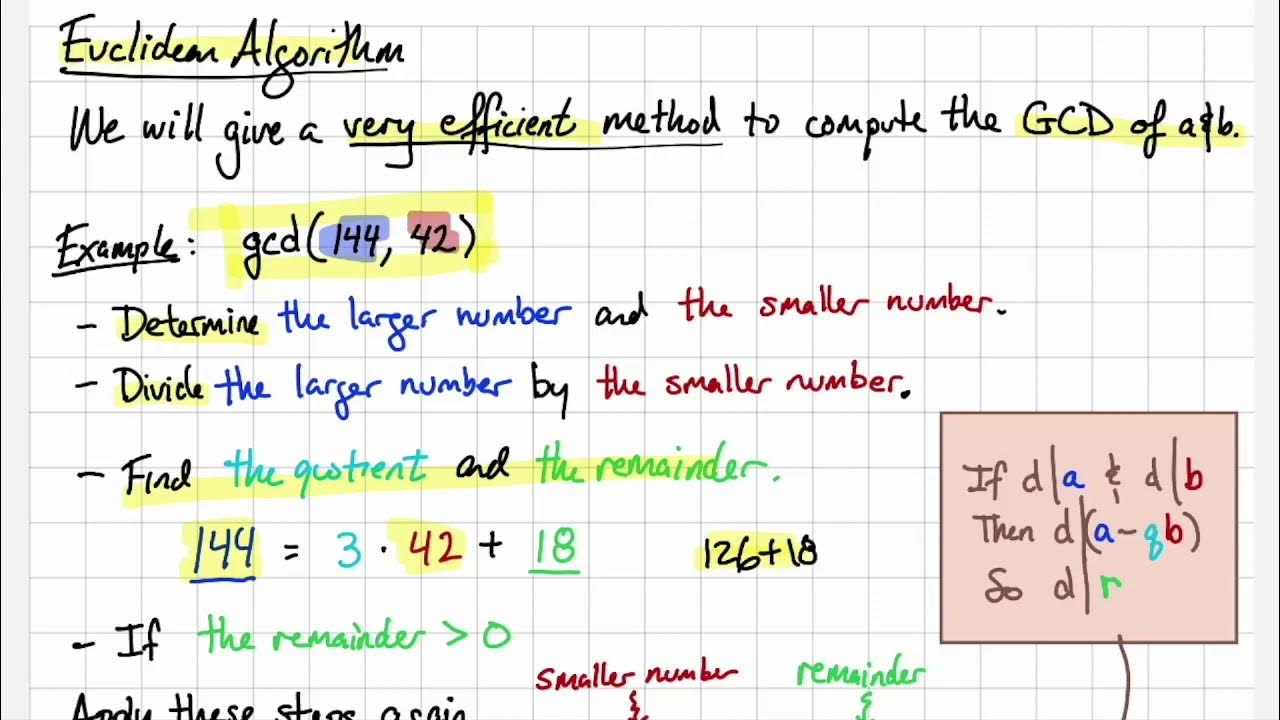 Euclidean Algorithm
We will give a very efficient method to compute the GCD of a&b.
Example: gcd(144, 42)
- Determine the larger number and the smaller number.
- Divide the larger number by the smaller number.
- Find the quotient and the remainder.
144 = 3 · 42 + 18 126+18
If d|a & d|b
Then d|(a-qb)
So d|r
- If the remainder > 0
smaller number remainder
Apply these steps again